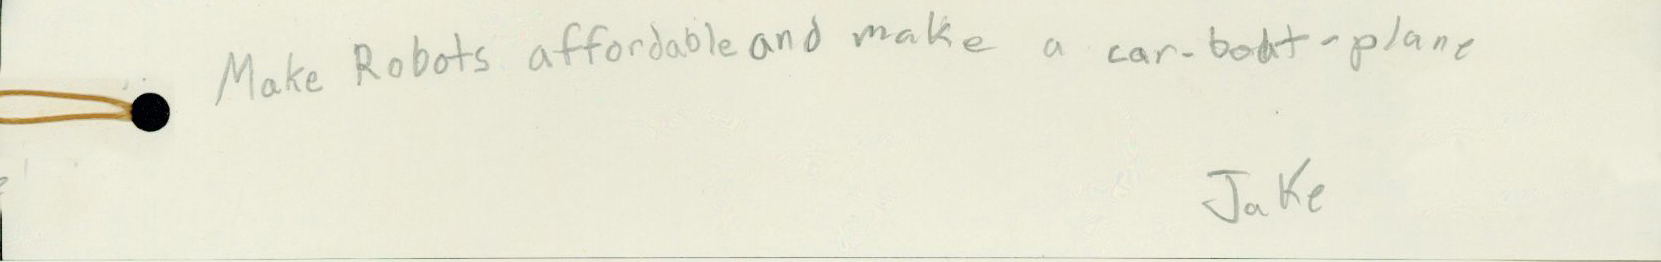 Make Robots affordable and make a car-boat-plane
Jake